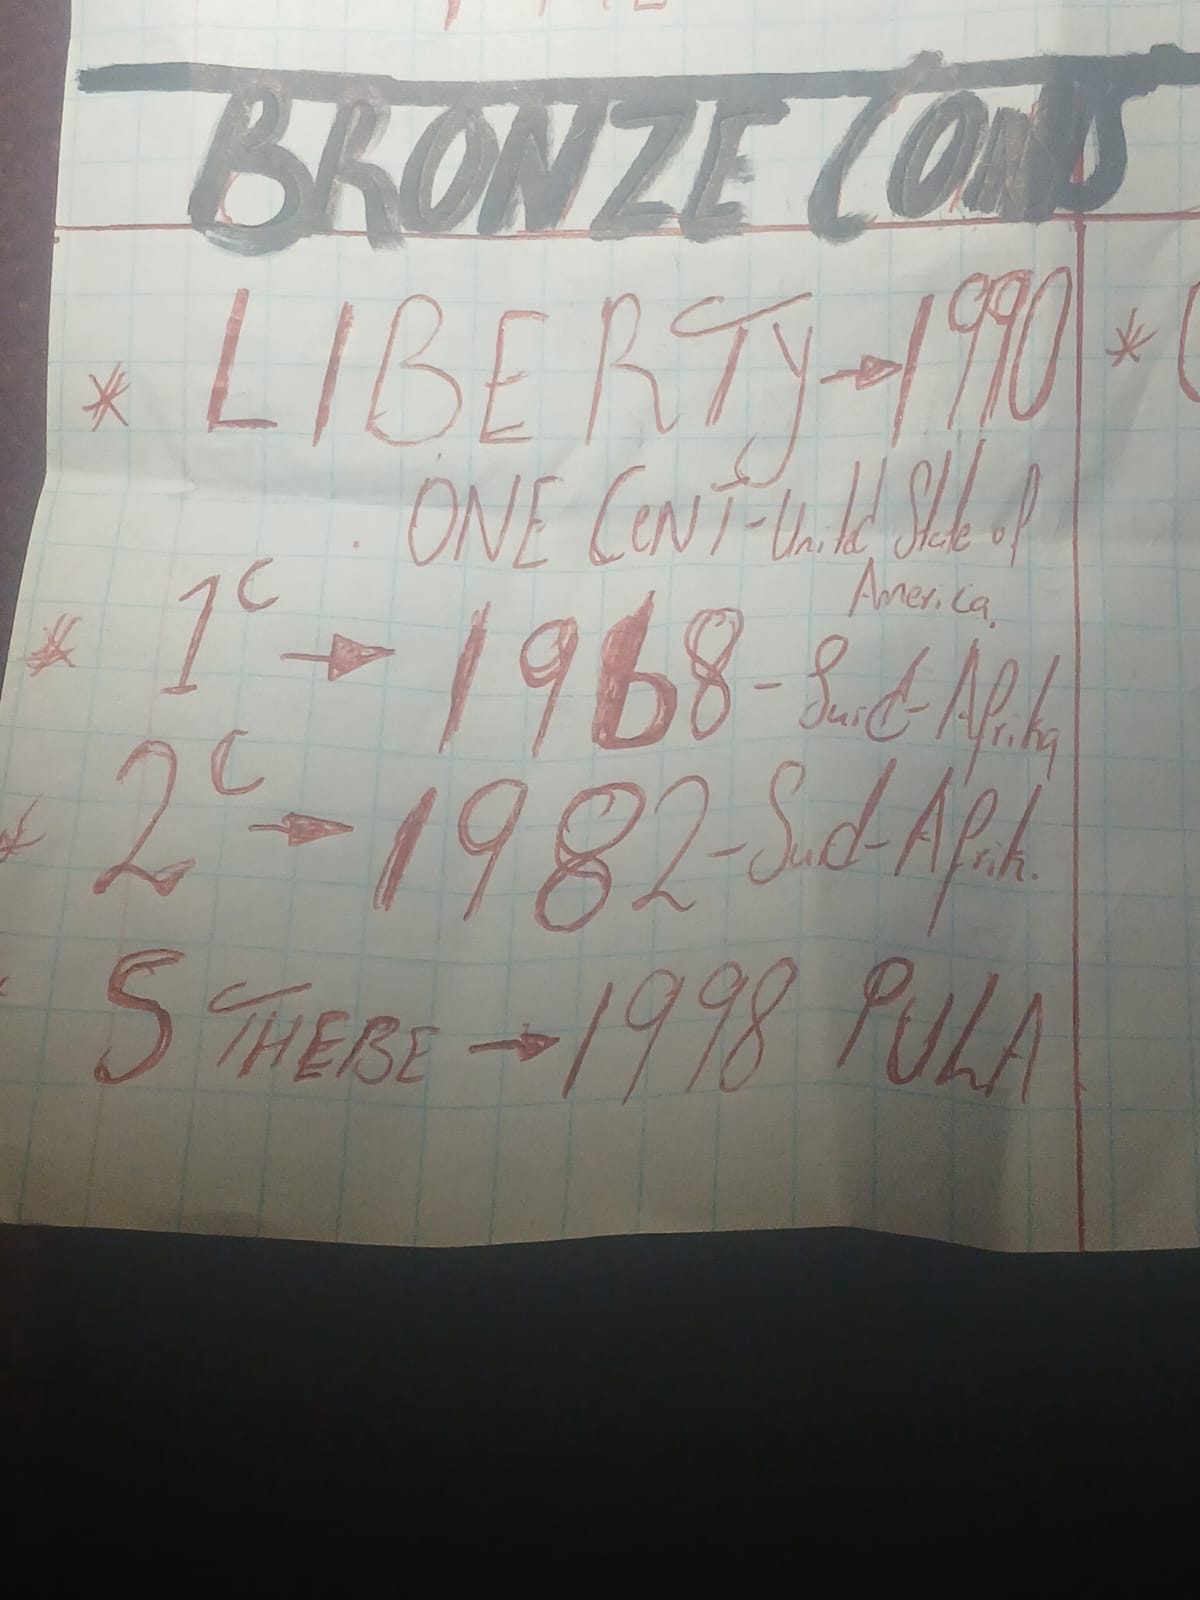 BRONZE COINS
* LIBERTY → 1990 *
. ONE CENT - Unitd State of
America.
* 1c → 1968 - Suid-Afrika
* 2c → 1982 - Suid-Afrik.
5 THEBE → 1998 PULA